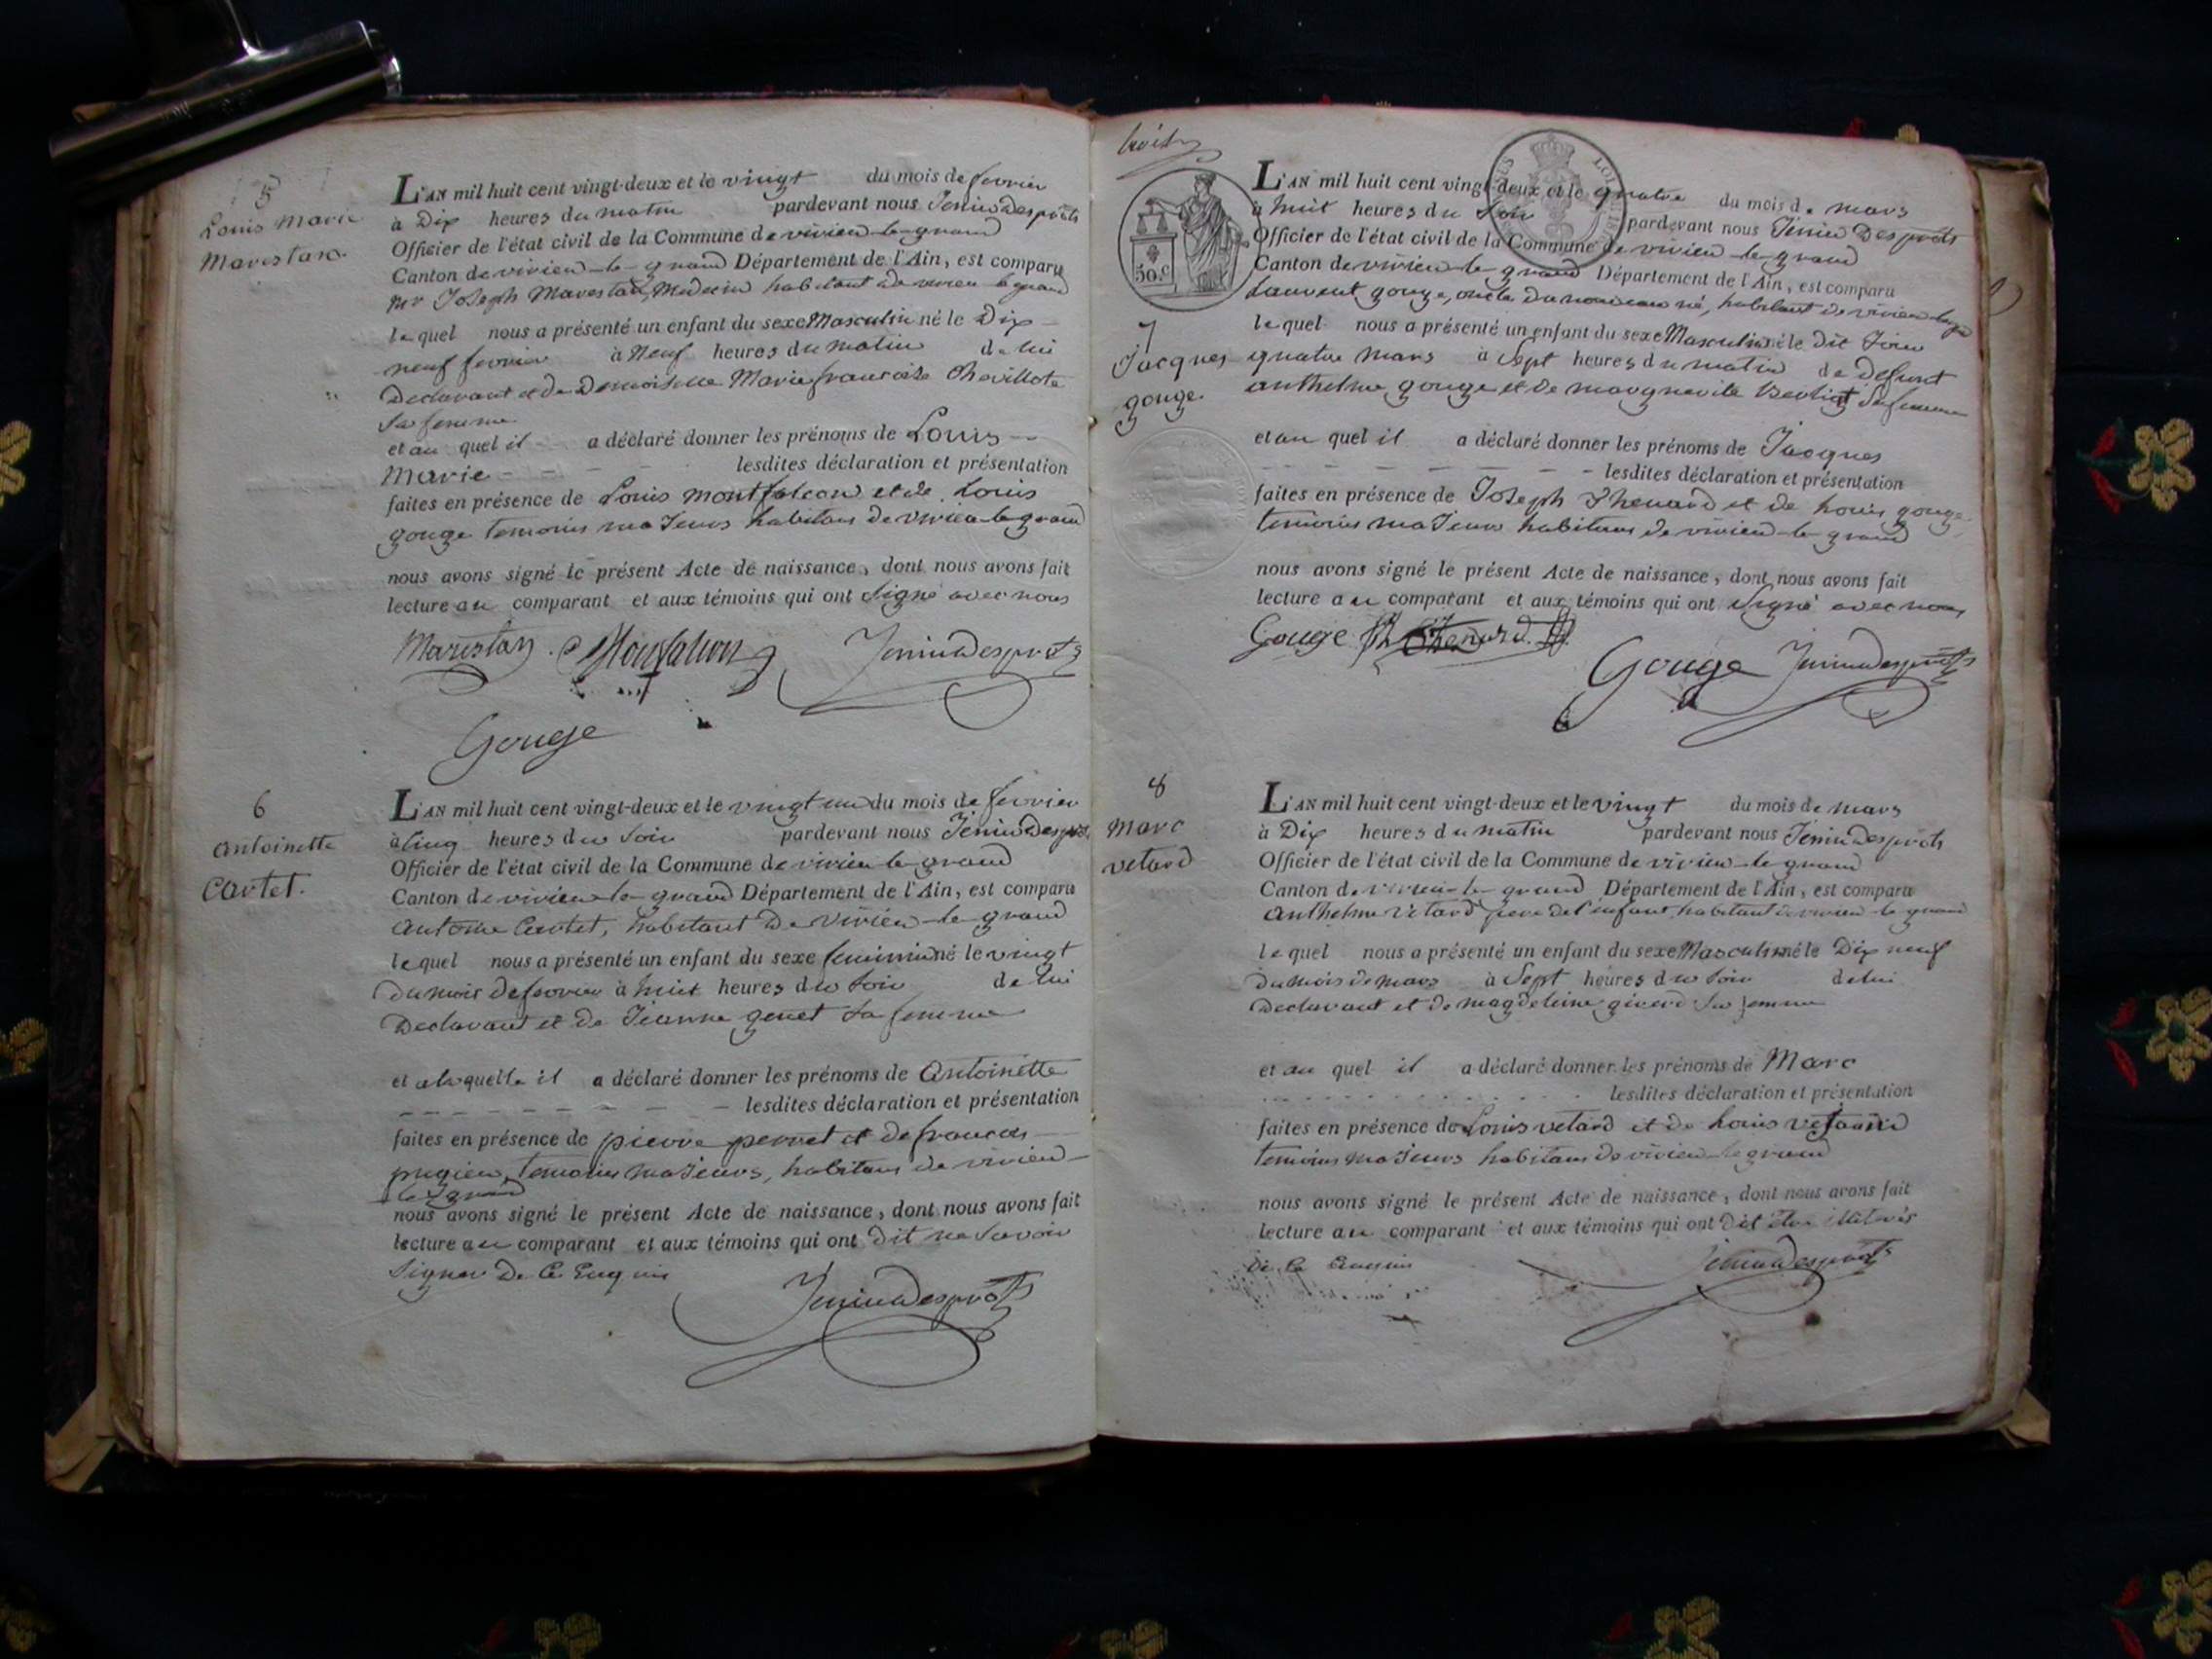 5
Louis Marie
Marestan.
L'AN mil huit cent vingt-deux et le vingt du mois de fevrier
à Dix heures du matin pardevant nous Jenin Desprots
Officier de l'état civil de la Commune de virieu-le-grand
Canton de virieu-le-grand Département de l'Ain, est comparu
Mr Joseph Marestan, Medecin habitant de virieu le grand
lequel nous a présenté un enfant du sexe Masculin né le Dix
neuf fevrier à Neuf heures du matin de lui
Declarant et de Demoiselle Marie francoise Chevillote
Sa femme
et au quel il a déclaré donner les prénoms de Louis
Marie lesdites déclaration et présentation
faites en présence de Louis montfalcon et de Louis
gouge temoins majeurs habitans de virieu-le-grand
nous avons signé le présent Acte de naissance, dont nous avons fait
lecture au comparant et aux témoins qui ont Signé avec nous
Marestan Montfalcon Jenindesprots
Gouge
6
antoinette
Cartet.
L'AN mil huit cent vingt-deux et le vingt un du mois de fevrier
à Cinq heures du Soir pardevant nous Jenin Desprots
Officier de l'état civil de la Commune de virieu le grand
Canton de virieu-le-grand Département de l'Ain, est comparu
antoine Cartet, habitant De virieu-le-grand
lequel nous a présenté un enfant du sexe feminin né le vingt
du mois de fevrier à huit heures du Soir de lui
Declarant et de Jeanne genet Sa femme
et a laquelle il a déclaré donner les prénoms de Antoinette
lesdites déclaration et présentation
faites en présence de pierre perret et de francois
pugieu, temoins majeurs, habitans de virieu
le grand
nous avons signé le présent Acte de naissance, dont nous avons fait
lecture au comparant et aux témoins qui ont Dit ne Savoir
Signer De Ce Enquis
Jenindesprots
50.C
7
Jacques
gouge.
L'AN mil huit cent vingt-deux et le quatre du mois de mars
à huit heures du Soir pardevant nous Jenin Desprots
Officier de l'état civil de la Commune de virieu-le-grand
Canton de virieu-le-grand Département de l'Ain, est comparu
Laurent gouge, oncle du nouveau né, habitant de virieu-le-gd
lequel nous a présenté un enfant du sexe Masculin né le Dit Jour
quatre mars à Sept heures du matin de Defunt
anthelme gouge et de marguerite Sa femme
et au quel il a déclaré donner les prénoms de Jacques
lesdites déclaration et présentation
faites en présence de Joseph Thenard et de Louis gouge
temoins majeurs habitans de virieu-le-grand
nous avons signé le présent Acte de naissance, dont nous avons fait
lecture au comparant et aux témoins qui ont Signé avec nous
Gouge Thenard
Gouge Jenindesprots
8
Marc
vetard
L'AN mil huit cent vingt-deux et le vingt du mois de mars
à Dix heures du matin pardevant nous Jenin Desprots
Officier de l'état civil de la Commune de virieu-le-grand
Canton de virieu-le-grand Département de l'Ain, est comparu
Anthelme Vetard pere de l'enfant, habitant de virieu-le-grand
lequel nous a présenté un enfant du sexe Masculin né le Dix neuf
du mois de mars à Sept heures du Soir de lui
Declarant et de magdeleine girerd Sa femme
et au quel il a déclaré donner les prénoms de Marc
lesdites déclaration et présentation
faites en présence de Louis vetard et de Louis
temoins majeurs habitans de virieu-le-grand
nous avons signé le présent Acte de naissance, dont nous avons fait
lecture au comparant et aux témoins qui ont Dit être illitrés
de Ce Enquis
Jenindesprots